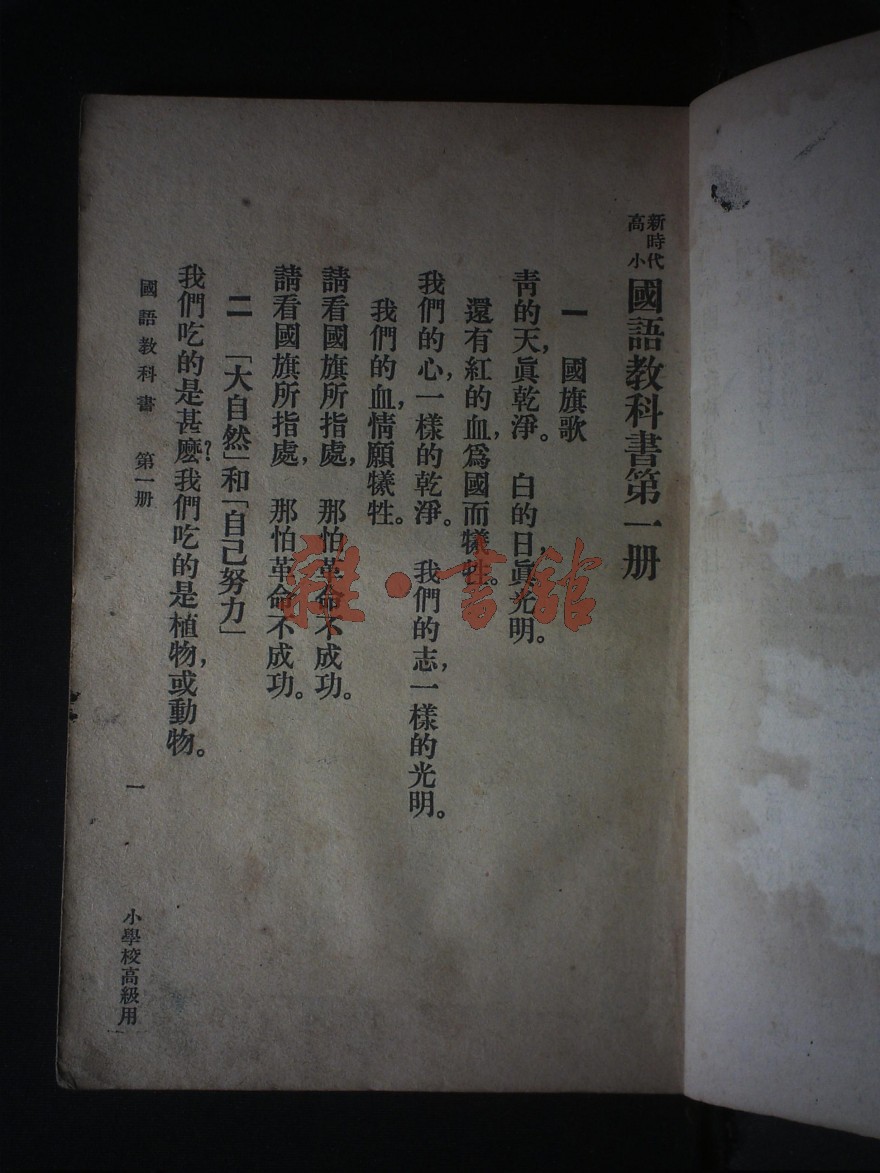 新時代
高小
國語教科書第一册
一　國旗歌
靑的天，眞乾淨。　白的日，眞光明。
還有紅的血，爲國而犧牲。
我們的心，一樣的乾淨。　我們的志，一樣的光明。
我們的血，情願犧牲。
請看國旗所指處，　那怕革命不成功。
請看國旗所指處，　那怕革命不成功。
二　「大自然」和「自己努力」
我們吃的是甚麽？我們吃的是植物，或動物。
國語教科書　第一册
一
小學校高級用
雜·書館